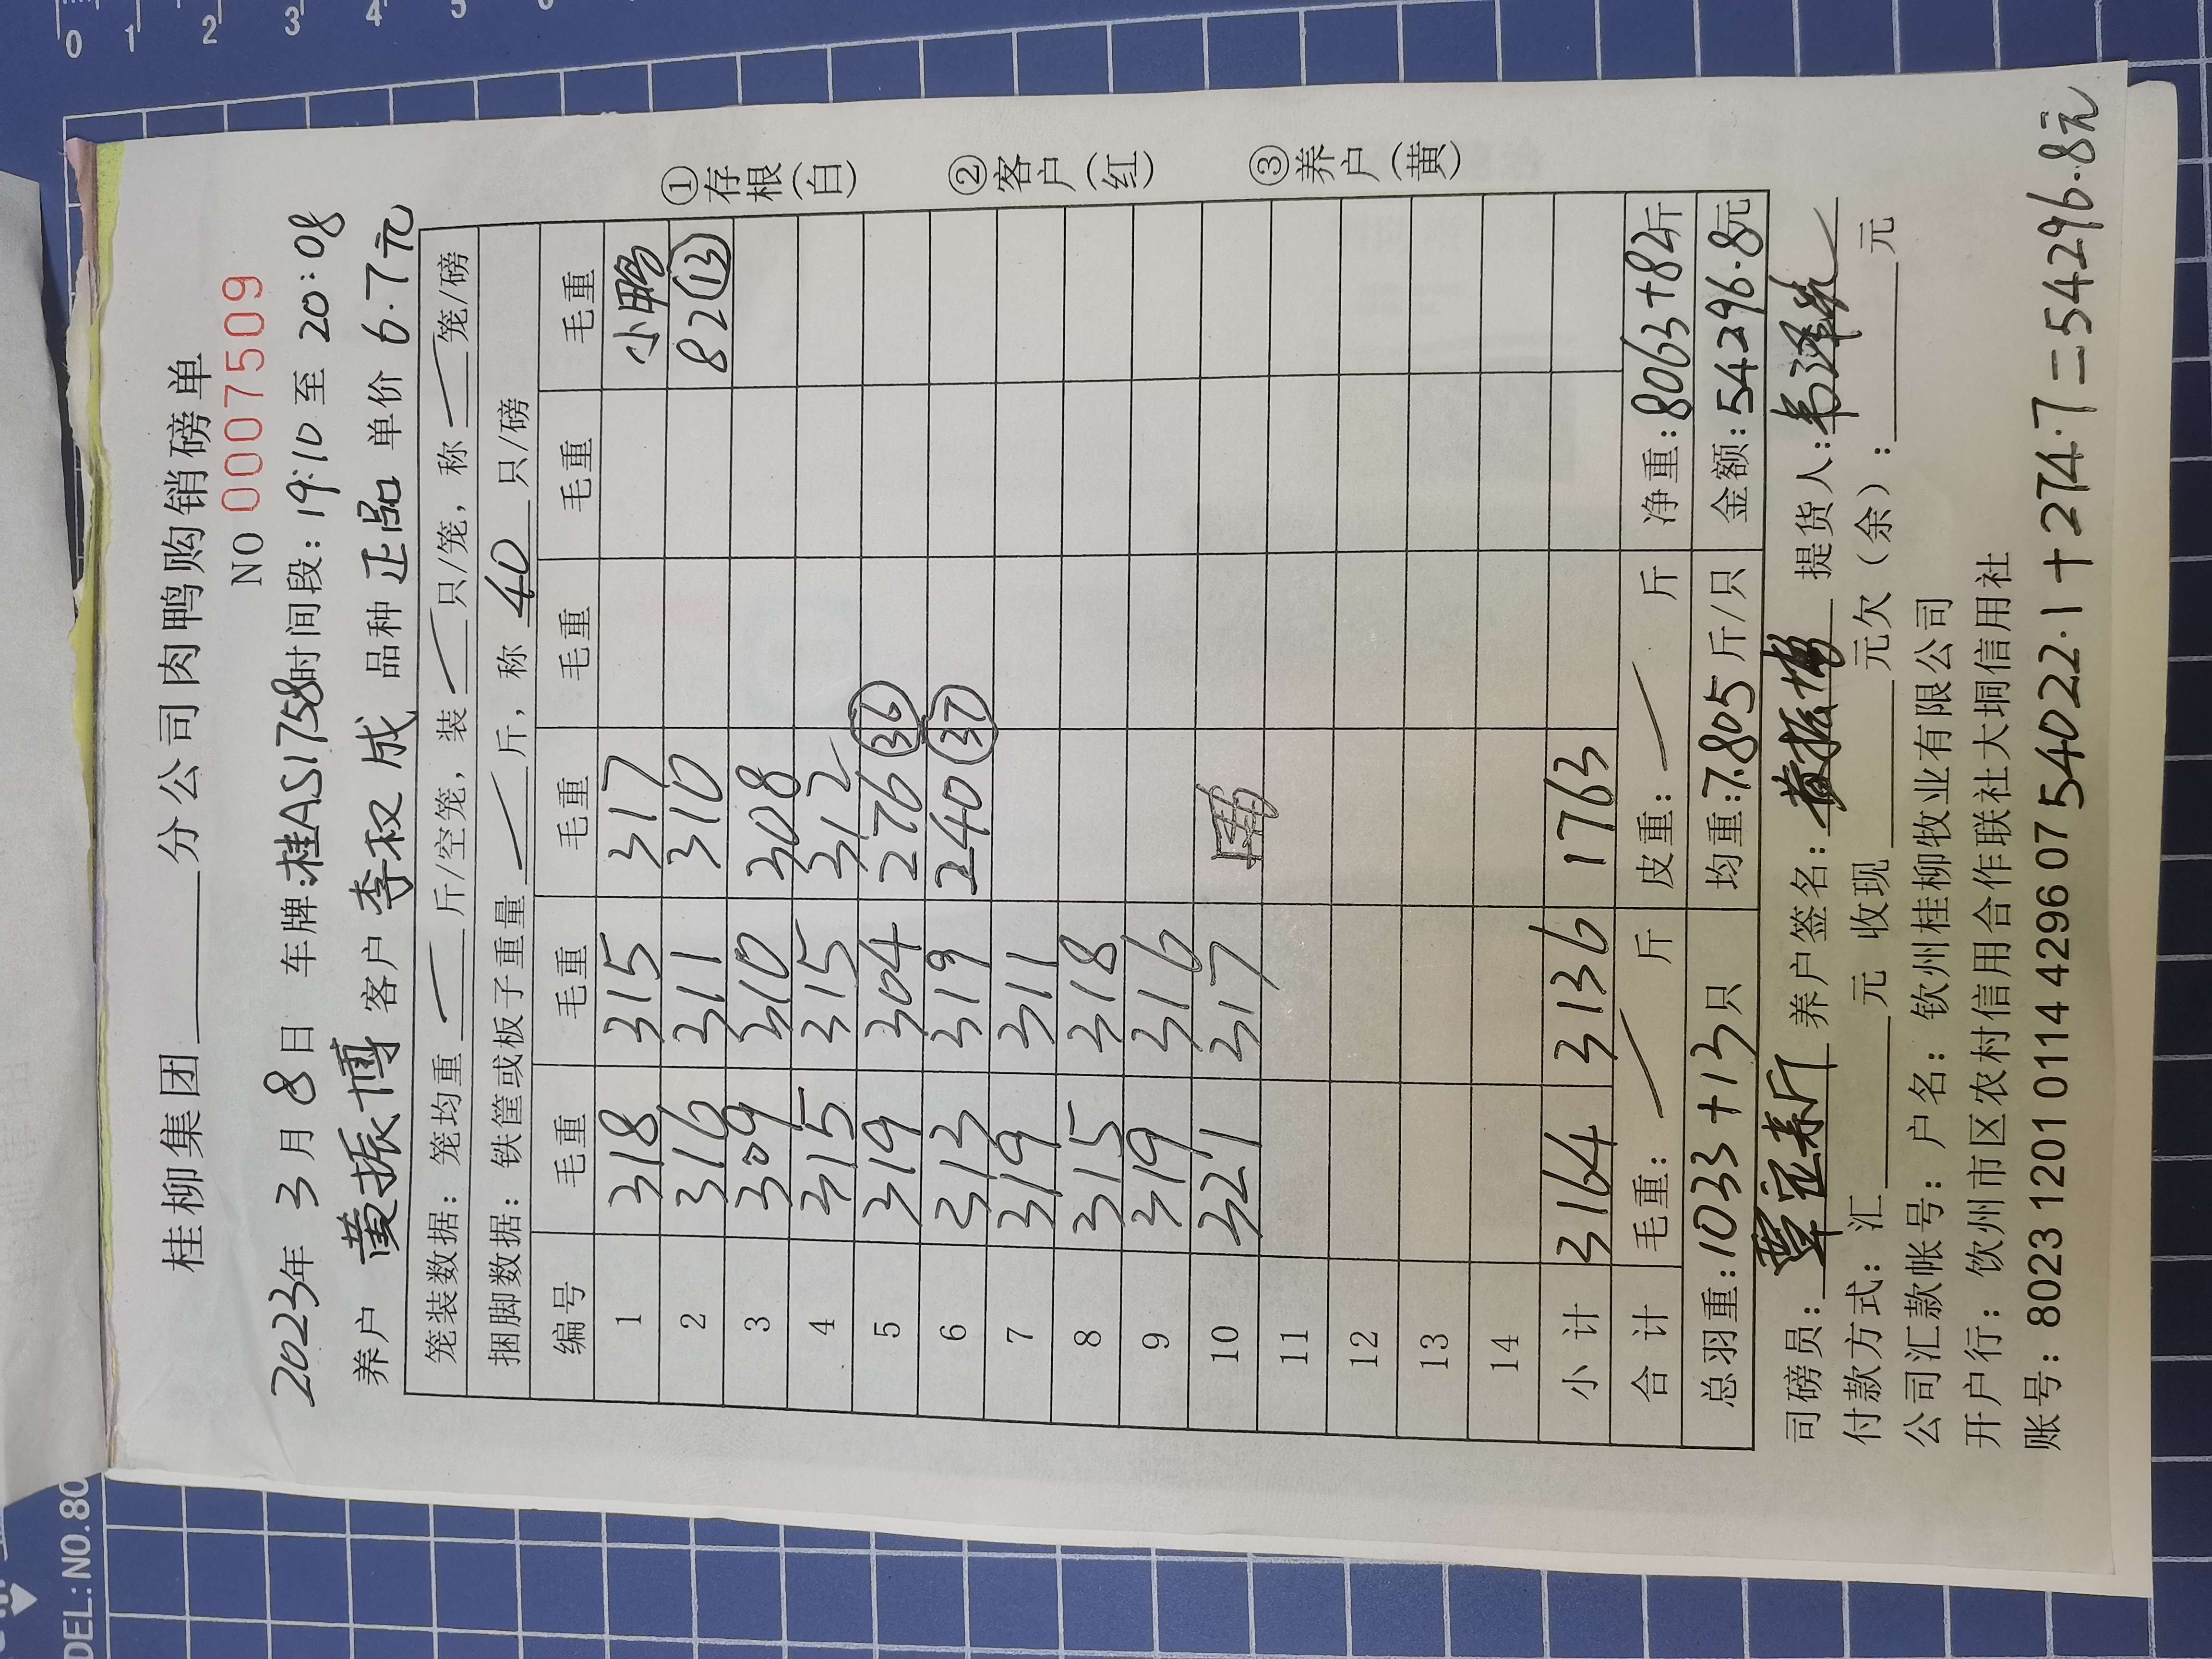 桂柳集团______分公司肉鸭购销磅单
NO 0007509
2023年 3 月 8 日 车牌:桂AS1758时间段:19:10 至 20:08
养户 黄振博 客户 李权成 品种 正品 单价 6.7元
笼装数据:笼均重______斤/空笼,装______只/笼,称______笼/磅
捆脚数据:铁筐或板子重量______斤,称 40 只/磅
编号 毛重 毛重 毛重 毛重 毛重 毛重
1 318 315 317 小鸭
2 316 311 310 82 ⑬
3 309 310 308
4 315 315 312
5 319 304 276 ㊱
6 313 319 240 ㊲
7 319 311
8 315 318
9 319 316
10 321 317
11
12
13
14
小计 3164 3136 1763
合计 毛重: 斤 皮重: 斤 净重:8063+82斤
总羽重:1033+13只 均重:7.805斤/只 金额:54296.8元
司磅员: 养户签名:黄振博 提货人:
付款方式:汇______元 收现______元欠(余):______元
公司汇款帐号:户名:钦州桂柳牧业有限公司
开户行:饮州市区农村信用合作联社大垌信用社
账号:80231201011442960７
54022.1+274.7=54296.8元
①存根(白)
②客户(红)
③养户(黄)
0 1 2 3 4 5 6
DEL: NO.80